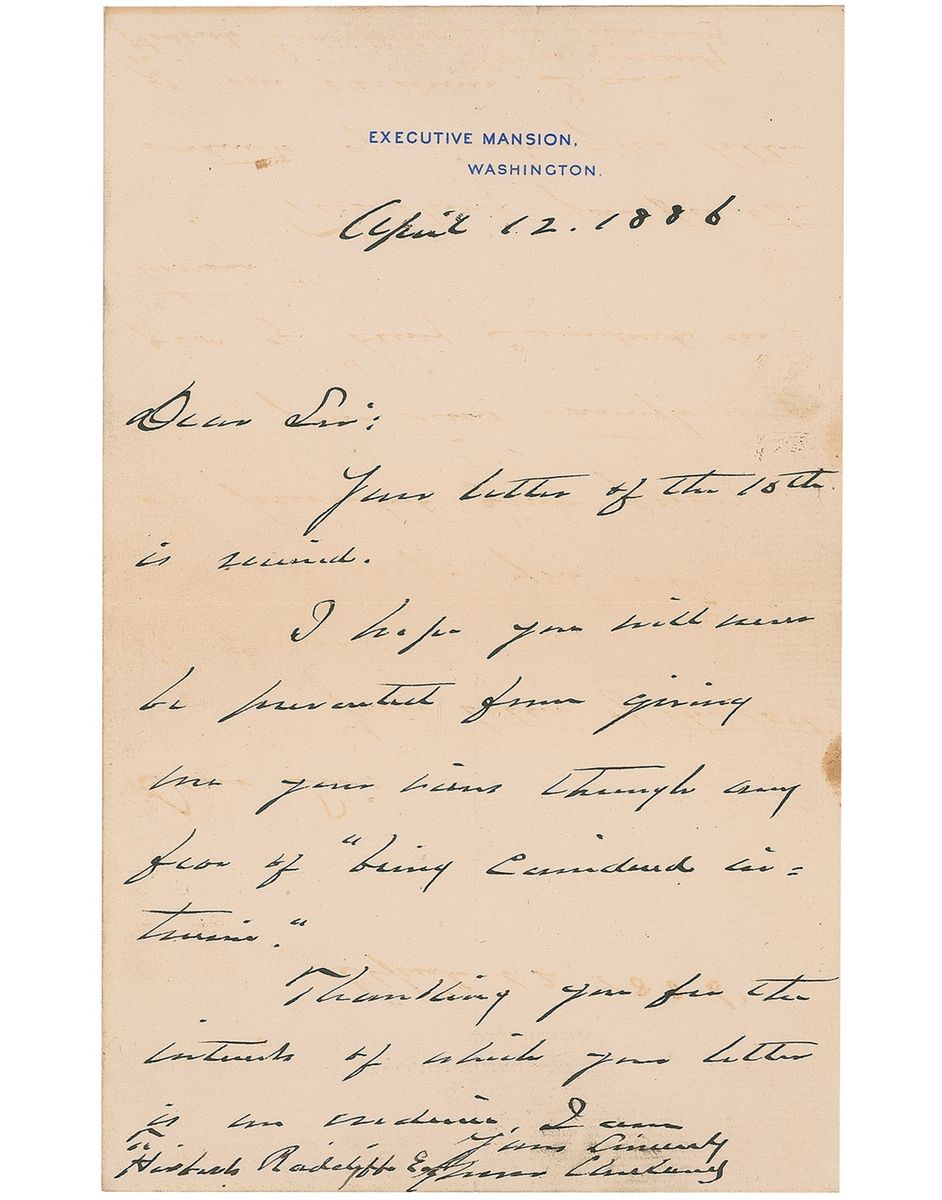 EXECUTIVE MANSION,
WASHINGTON.
April 12. 1886
Dear Sir:
Your letter of the 10th
is received.
I hope you will never
be prevented from giving
me your views through any
fear of "being considered in=
trusive."
Thanking you for the
interest of which your letter
is an evidence, I am
Yours Sincerely
Grover Cleveland
To
Herbert Radclyffe Esq